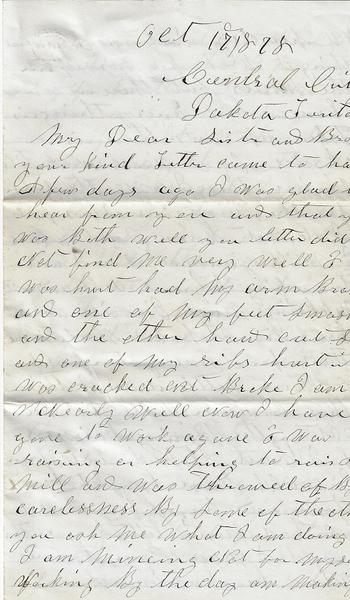 Oct 12 1878
Central Cit
Dakota Territo
My Dear Sistr and Bro
your kind Letter came to ha
a few days ago I was glad
hear from you and that y
was both well you letter did
not find me very well I
was hurt had my arm Bro
and one of my feet smas
and the other hand cut
and one of my ribs hurt
was cracked not Broke I am
Nearly well now I have
gone to work agane I was
raising or helping to rais
Mill and was throwed of By
carelessness By some of the oth
you ask me what I am doing
I am mineing not for myse
Working By the day am making